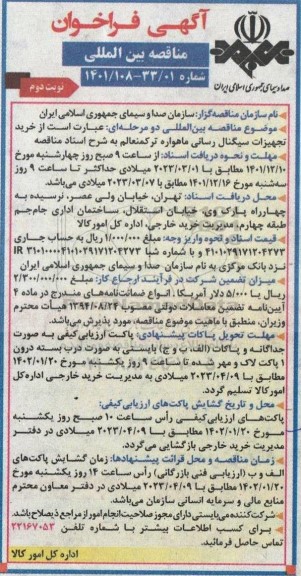 آگهی فراخوان
مناقصه بین المللی
شماره ۳۳/۰۱-۱۴۰۱/۱۰۸
نوبت دوم
صدا و سیمای جمهوری اسلامی ایران
نام سازمان مناقصه‌گزار: سازمان صدا و سیمای جمهوری اسلامی ایران
موضوع مناقصه بین‌المللی دو مرحله‌ای: عبارت است از خرید
تجهیزات سیگنال رسانی ماهواره ترکمنعالم به شرح اسناد مناقصه
مهلت و نحوه دریافت اسناد: از ساعت ۹ صبح روز چهارشنبه مورخ
۱۴۰۱/۱۲/۱۰ مطابق با ۲۰۲۳/۰۳/۰۱ میلادی حداکثر تا ساعت ۹ روز
سه‌شنبه مورخ ۱۴۰۱/۱۲/۱۶ مطابق با ۲۰۲۳/۰۳/۰۷ میلادی می‌باشد.
محل دریافت اسناد: تهران، خیابان ولی عصر، نرسیده به
چهارراه پارک وی، خیابان استقلال، ساختمان اداری جام‌جم
طبقه چهارم، مدیریت خرید خارجی، اداره کل امور کالا
قیمت اسناد و نحوه واریز وجه: مبلغ ۱/۰۰۰/۰۰۰ ریال به حساب جاری
۴۱۰۱۰۲۹۱۷۱۲۰۴۲۷۳ و با شماره شبا
نزد بانک مرکزی به نام سازمان صدا و سیمای جمهوری اسلامی ایران
میزان تضمین شرکت در فرآیند ارجاع کار: مبلغ ۲/۳۰۰/۰۰۰/۰۰۰
ریال یا ۵/۰۰۰ دلار آمریکا، انواع ضمانت‌نامه‌های مندرج در ماده ۴
آیین‌نامه تضمین معاملات دولتی مصوب ۱۳۹۴/۰۸/۲۴ هیأت محترم
وزیران، منطبق با ماهیت موضوع مناقصه، مورد پذیرش می‌باشد.
مهلت تحویل پاکات پیشنهادی: پاکت ارزیابی کیفی به صورت
جداگانه و پاکات (الف، ب و ج) بایستی به صورت درب بسته درون
۱ پاکت لاک و مهر شده تا ساعت ۹ روز یکشنبه مورخ ۱۴۰۲/۰۱/۲۰
مطابق با ۲۰۲۳/۰۴/۰۹ میلادی به مدیریت خرید خارجی اداره کل
امور کالا تسلیم گردد.
محل و تاریخ گشایش پاکت‌های ارزیابی کیفی:
پاکت‌های ارزیابی کیفی رأس ساعت ۱۰ صبح روز یکشنبه
مورخ ۱۴۰۲/۰۱/۲۰ مطابق با ۲۰۲۳/۰۴/۰۹ میلادی در دفتر
مدیریت خرید خارجی بازگشایی می‌گردد.
زمان مناقصه و محل قرائت پیشنهادها: زمان گشایش پاکت‌های
الف و ب (ارزیابی فنی بازرگانی) رأس ساعت ۱۴ روز یکشنبه مورخ
۱۴۰۲/۰۱/۲۰ مطابق با ۲۰۲۳/۰۴/۰۹ میلادی در دفتر معاون محترم
منابع مالی و سرمایه انسانی سازمان می‌باشد.
شرکت‌کننده می‌بایستی دارای مجوز صلاحیت انجام امور از مراجع ذیصلاح باشد.
برای کسب اطلاعات بیشتر با شماره تلفن ۲۲۱۶۷۰۵۳
تماس حاصل فرمائید.
اداره کل امور کالا